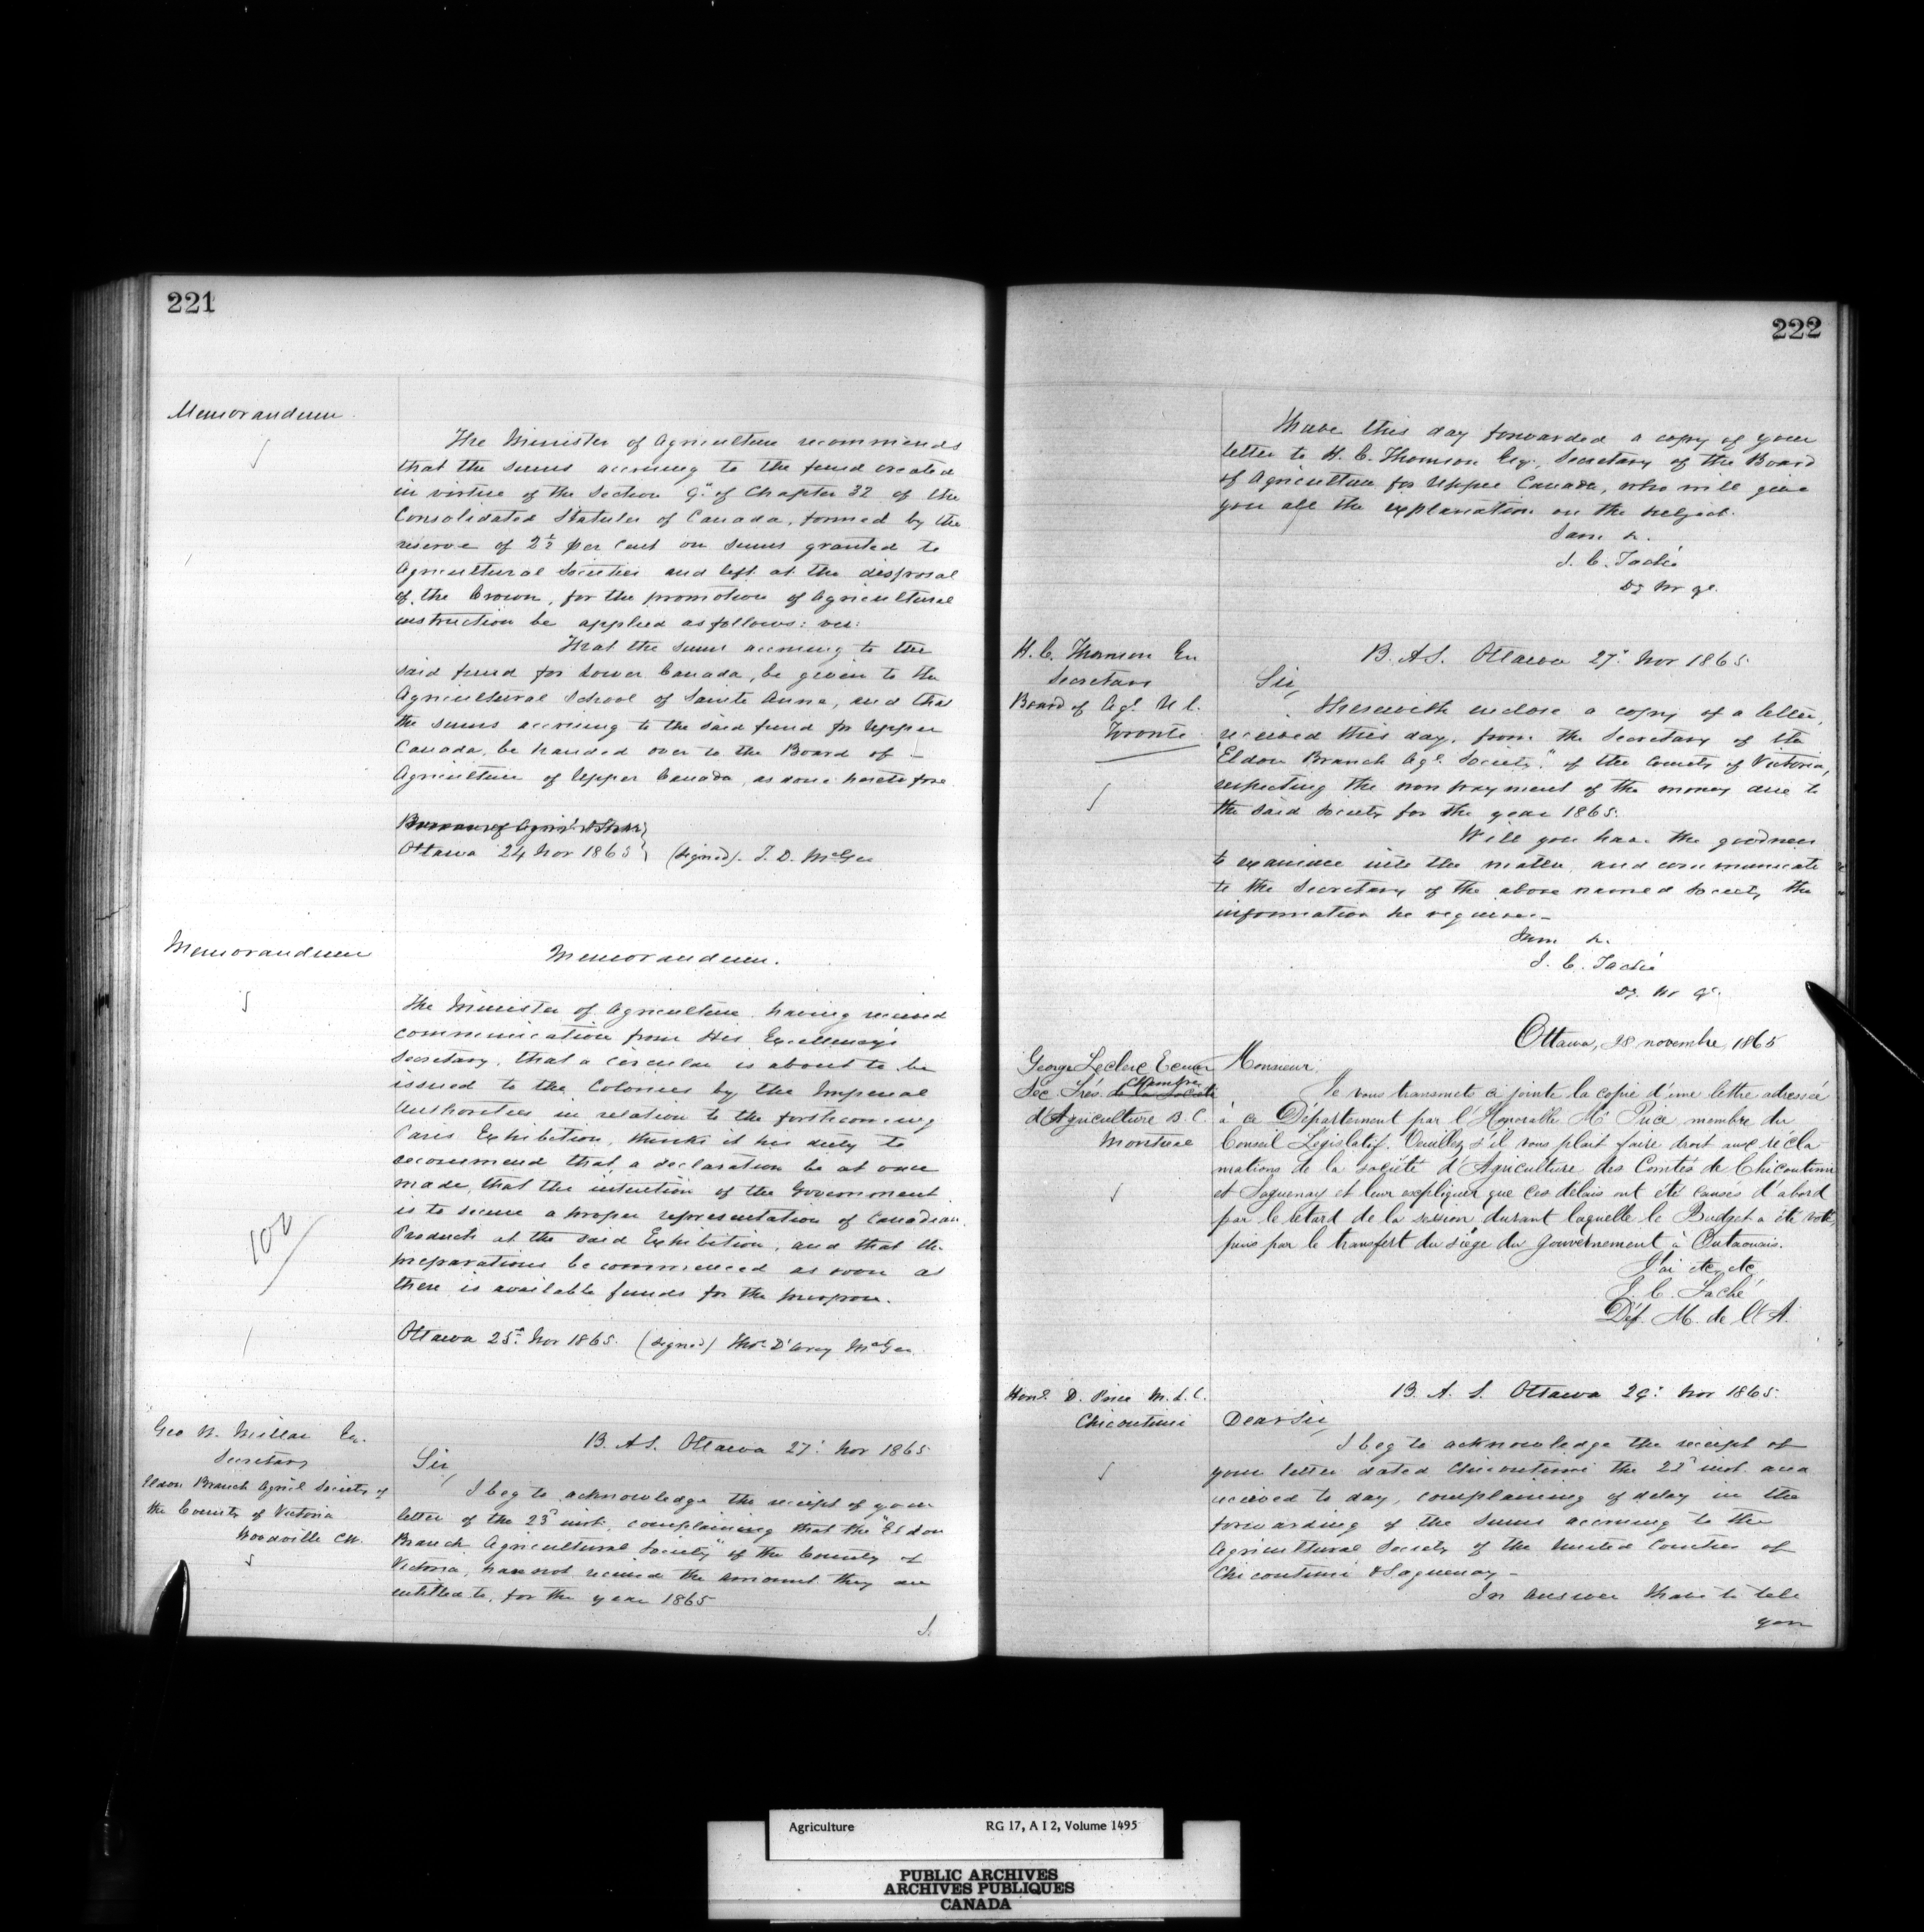 221
Memorandum
The Minister of Agriculture recommends
that the sums accruing to the fund created
in virtue of the Section 9th of Chapter 32 of the
Consolidated Statutes of Canada, formed by the
reserve of 2½ per cent on sums granted to
Agricultural Societies and left at the disposal
of the Crown, for the promotion of Agricultural
instruction be applied as follows: viz:
That the sums accruing to the
said fund for Lower Canada, be given to the
Agricultural School of Sainte Anne, and that
the sums accruing to the said fund for Upper
Canada, be handed over to the Board of
Agriculture of Upper Canada, as done heretofore
Bureau of Agric. & Stat.
Ottawa 24 Nov 1865 (signed). T. D. McGee
Memorandum
Memorandum.
The Minister of Agriculture, having received
communication from His Excellency's
Secretary, that a circular is about to be
issued to the Colonies by the Imperial
Authorities in relation to the forthcoming
Paris Exhibition, thinks it his duty to
recommend that a declaration be at once
made, that the intention of the Government
is to secure a proper representation of Canadian
Products at the said Exhibition, and that the
preparations be commenced as soon as
there is available funds for the purpose.
100
Ottawa 25th Nov 1865. (signed) Thos D'Arcy McGee
Geo W. Millar Esq.
Secretary
Eldon Branch Agricl Society of
the County of Victoria
Woodville CW.
B. A S. Ottawa 27: Nov 1865
Sir,
I beg to acknowledge the receipt of your
letter of the 23d inst, complaining that the "Eldon
Branch Agricultural Society" of the County of
Victoria, have not received the amount they are
entitled to, for the year 1865
I.
222
I have this day forwarded a copy of your
letter to H. C. Thomson Esq., Secretary of the Board
of Agriculture for Upper Canada, who will give
you all the explanation on the subject.
I am &.
J. C. Taché
Dy Mr &c.
H. C. Thomson Esq
Secretary
Board of Agl U C.
Toronto
B. A S. Ottawa 27: Nov 1865
Sir,
I herewith enclose a copy of a letter,
received this day, from the Secretary of the
"Eldon Branch Agl Society" of the County of Victoria,
respecting the non payment of the money due to
the said Society for the year 1865.
Will you have the goodness
to examine into the matter, and communicate
to the Secretary of the above named Society the
information he requires.-
I am &.
J. C. Taché
Dy. Mr &c.
Ottawa, 28 novembre, 1865
George Leclerc Ecuier
Sec. Trés. de la Société Chambre
d'Agriculture B. C.
Montréal
Monsieur,
Je vous transmets ci jointe la copie d'une lettre adressée
à ce Département par l'Honorable Mr Price, membre du
Conseil Législatif. Veuillez, s'il vous plait faire droit aux récla
mations de la société d'Agriculture des Comtés de Chicoutimi
et Saguenay et leur expliquer que ces délais ont été causés d'abord
par le retard de la session, durant laquelle le Budget a été voté,
puis par le transfert du siège du gouvernement à Outaouais.
J'ai etc, etc
J. C. Taché
Dép. M. de l'A.
Honl. D. Price M. L. C.
Chicoutimi
B. A. S. Ottawa 29: Nov 1865.
Dear Sir,
I beg to acknowledge the receipt of
your letter dated Chicoutimi the 22d inst. and
received to day, complaining of delay in the
forwarding of the sums accruing to the
Agricultural Society of the United Counties of
Chicoutimi & Saguenay -
In answer I have to tell
you
Agriculture RG 17, A I 2, Volume 1495
PUBLIC ARCHIVES
ARCHIVES PUBLIQUES
CANADA